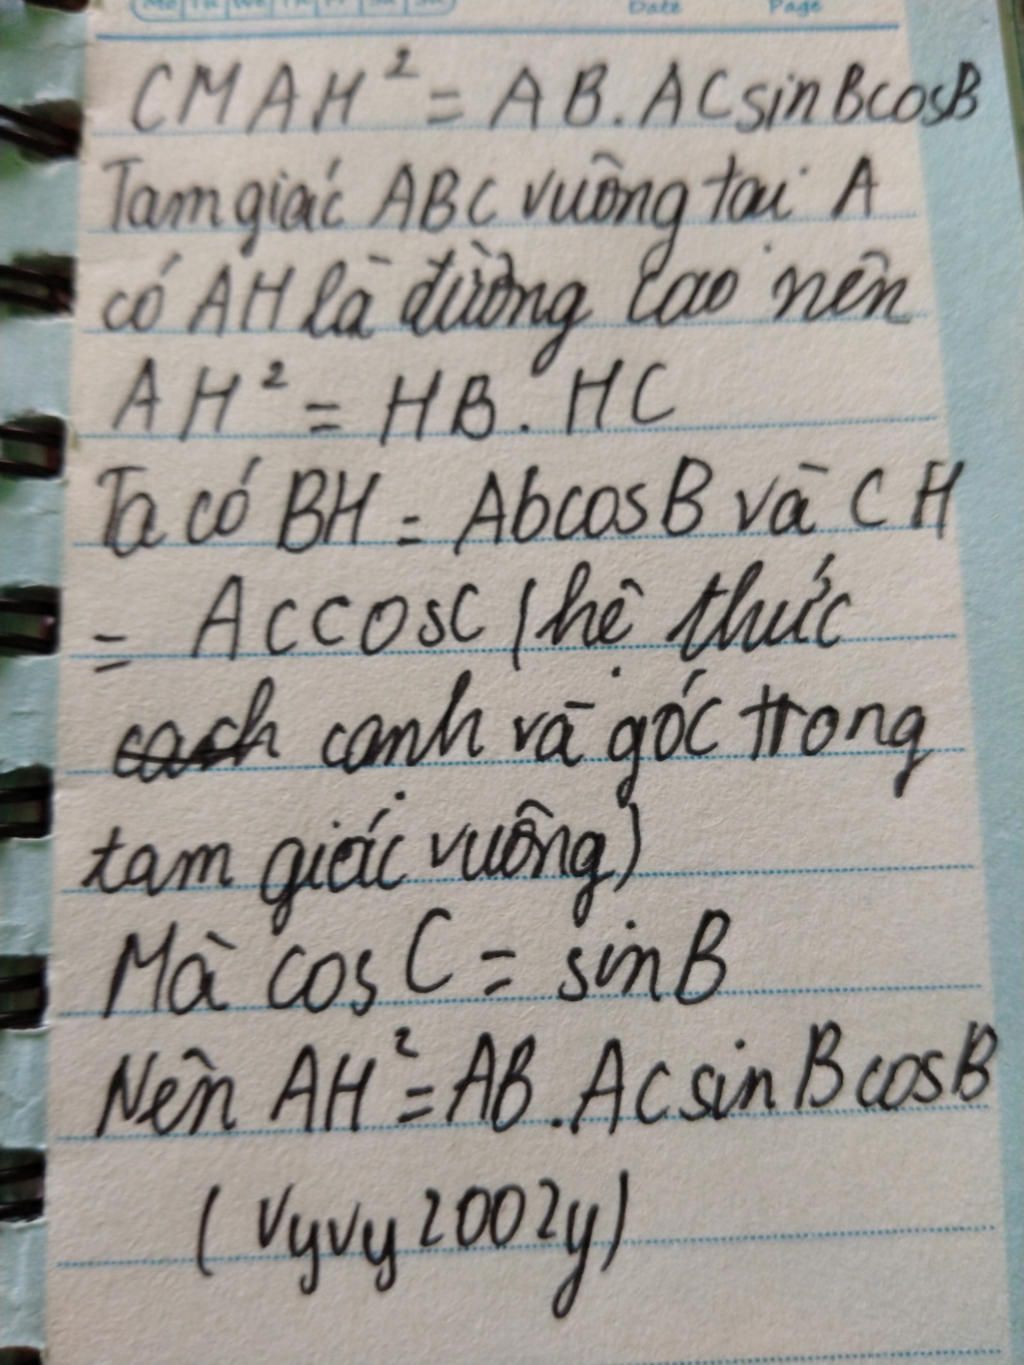 Mo Tu We Th Fr Sa Su Date Page
CMAH² = AB.ACsinBcosB
Tam giác ABC vuông tại A
có AH là đường cao nên
AH² = HB.HC
Ta có BH = AbcosB và CH
= ACCOSC (hệ thức
canh và góc trong
tam giác vuông)
Mà cosC = sinB
Nên AH² = AB.ACsinBcosB
(Vyvy2002y)